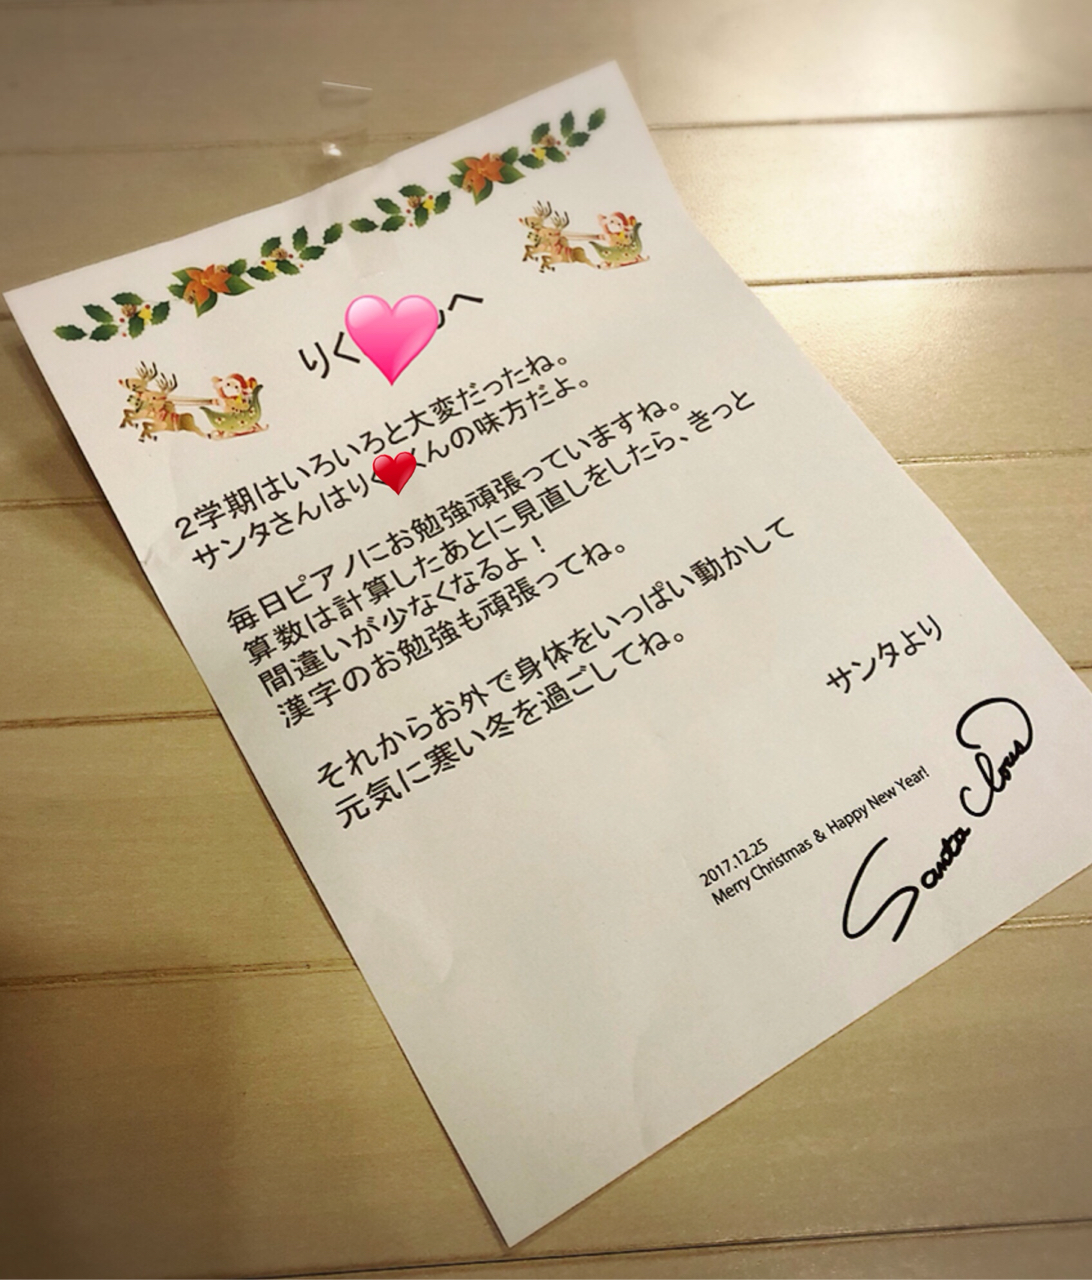 りく へ
2学期はいろいろと大変だったね。
サンタさんはりくくんの味方だよ。
毎日ピアノにお勉強頑張っていますね。
算数は計算したあとに見直しをしたら、きっと
間違いが少なくなるよ！
漢字のお勉強も頑張ってね。
それからお外で身体をいっぱい動かして
元気に寒い冬を過ごしてね。
サンタより
2017.12.25
Merry Christmas & Happy New Year!
Santa Claus